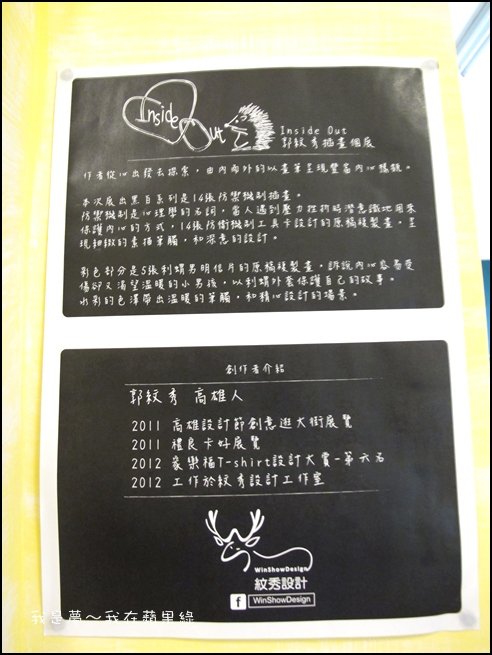 Inside Out
Inside Out
郭紋秀插畫個展
作者從心出發去探索，由內而外的以畫筆呈現豐富內心樣貌。
本次展出黑白系列是14張防禦機制插畫。
防禦機制是心理學的名詞，當人遇到壓力挫折時潛意識地用來
保護內心的方式，14張防衛機制工具卡設計的原稿複製畫，呈
現細緻的素描筆觸，和深意的設計。
彩色部分是5張刺蝟男明信片的原稿複製畫，訴說內心容易受
傷卻又渴望溫暖的小男孩，以刺蝟外套保護自己的故事。
水彩的色澤帶出溫暖的筆觸，和精心設計的場景。
創作者介紹
郭紋秀 高雄人
2011 高雄設計節創意逛大街展覽
2011 禮良卡好展覽
2012 家樂福T-shirt設計大賞-第六名
2012 工作於紋秀設計工作室
WinShowDesign
紋秀設計
f WinShowDesign
我是萬～我在蘋果綠